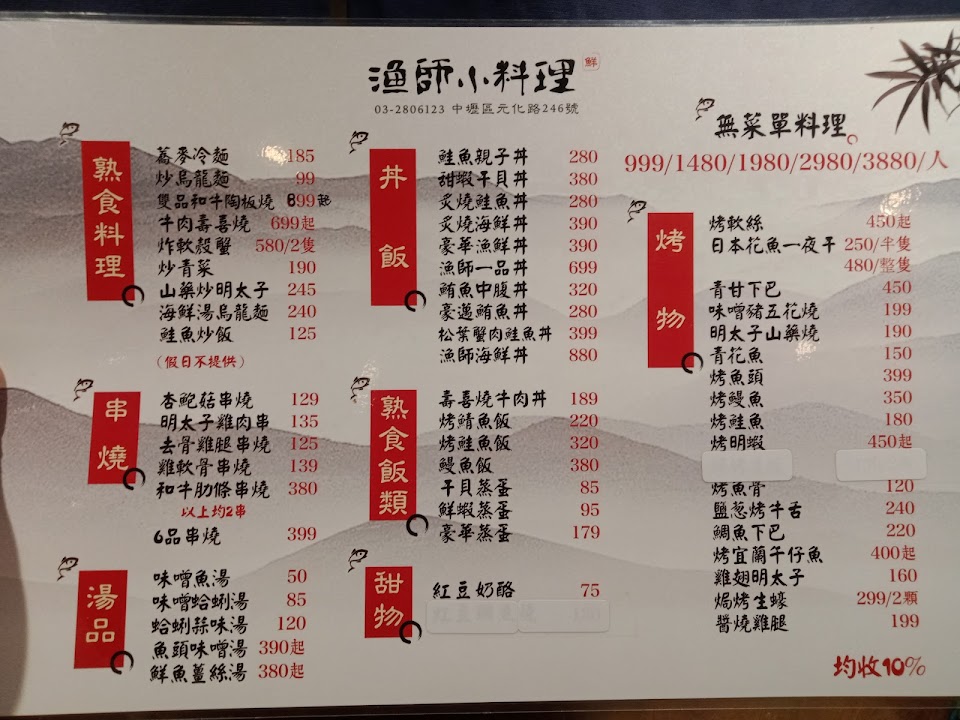 漁師小料理
鮮
03-2806123 中壢區元化路246號
熟食料理
蕎麥冷麵 185
炒烏龍麵 99
雙品和牛陶板燒 899起
牛肉壽喜燒 699起
炸軟殼蟹 580/2隻
炒青菜 190
山藥炒明太子 245
海鮮湯烏龍麵 240
鮭魚炒飯 125
(假日不提供)
串燒
杏鮑菇串燒 129
明太子雞肉串 135
去骨雞腿串燒 125
雞軟骨串燒 139
和牛肋條串燒 380
以上均2串
6品串燒 399
湯品
味噌魚湯 50
味噌蛤蜊湯 85
蛤蜊蒜味湯 120
魚頭味噌湯 390起
鮮魚薑絲湯 380起
丼飯
鮭魚親子丼 280
甜蝦干貝丼 380
炙燒鮭魚丼 280
炙燒海鮮丼 390
豪華漁鮮丼 390
漁師一品丼 699
鮪魚中腹丼 320
豪邁鮪魚丼 280
松葉蟹肉鮭魚丼 399
漁師海鮮丼 880
熟食飯類
壽喜燒牛肉丼 189
烤鯖魚飯 220
烤鮭魚飯 320
鰻魚飯 380
干貝蒸蛋 85
鮮蝦蒸蛋 95
豪華蒸蛋 179
甜物
紅豆奶酪 75
無菜單料理
999/1480/1980/2980/3880/人
烤物
烤軟絲 450起
日本花魚一夜干 250/半隻
480/整隻
青甘下巴 450
味噌豬五花燒 199
明太子山藥燒 190
青花魚 150
烤魚頭 399
烤鰻魚 350
烤鮭魚 180
烤明蝦 450起
烤魚骨 120
鹽蔥烤牛舌 240
鯛魚下巴 220
烤宜蘭午仔魚 400起
雞翅明太子 160
焗烤生蠔 299/2顆
醬燒雞腿 199
均收10%